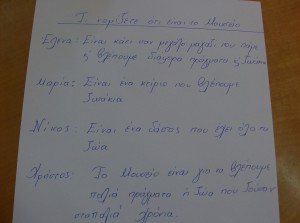 Τι νομίζετε ότι είναι το Μουσείο
Ελένα: Είναι κάτι σαν μεγάλο μαγαζί που πάμε
ς βλέπουμε διάφορα πράγματα ς
Μαρία: Είναι ένα κτίριο που βλέπουμε
Νίκος: Είναι ένα δάσος που έχει όλα τα
ζώα.
Χρήστος: Το Μουσείο είναι για να βλέπουμε
παλιά πράγματα ή ζώα που ζούσαν
στα παλιά χρόνια.